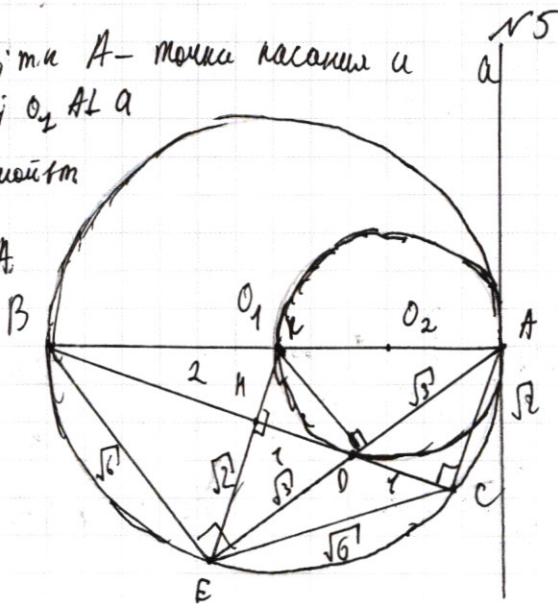 №5
т.к A – точка касания и
a
O₁ A ⊥ a
A
B
O₁
K
O₂
A
2
H
√3
√2
√6
√2
1
√3
D
1
C
√6
E